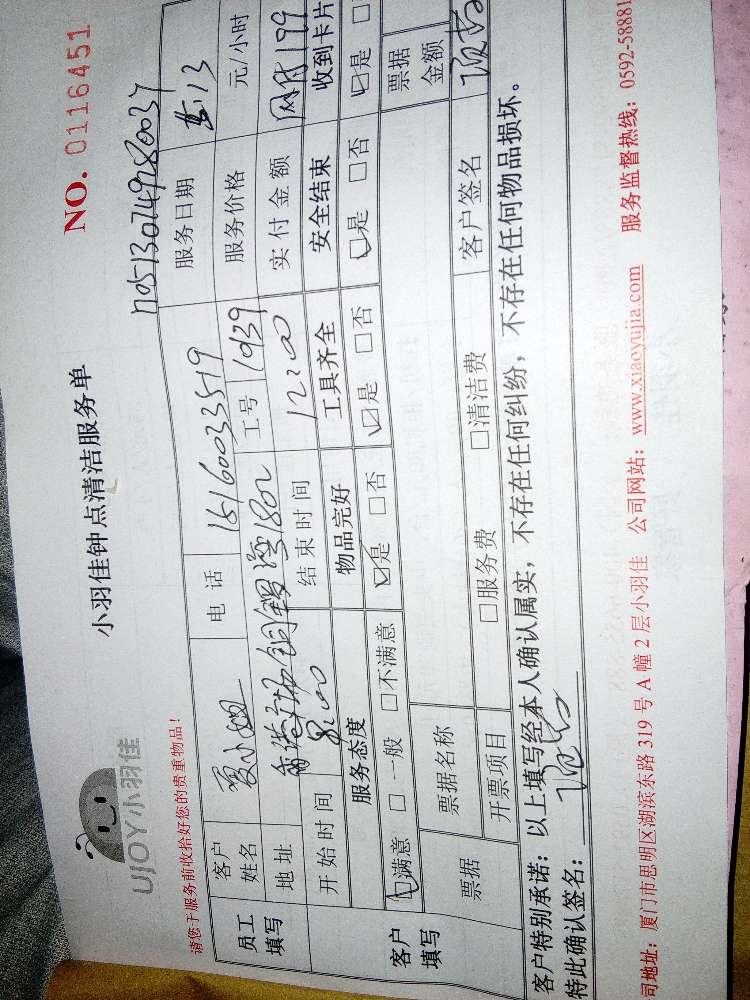 UJOY小羽佳
小羽佳钟点清洁服务单
NO. 0116451
请您于服务前收拾好您的贵重物品！
员工填写
客户姓名 夏小姐 电话 15160033519 服务日期 5.13
地址 香港城铜锣湾1802 工号 1939 服务价格 元/小时
开始时间 8:00 结束时间 12:00 实付金额 199
客户填写
服务态度 物品完好 工具齐全 安全结束 收到卡片
☑满意 □一般 □不满意 ☑是 □否 ☑是 □否 ☑是 □否 ☑是 □
票据 票据名称 票据金额
开票项目 □服务费 □清洁费 客户签名
客户特别承诺：以上填写经本人确认属实，不存在任何纠纷，不存在任何物品损坏。
特此确认签名：
司地址：厦门市思明区湖滨东路 319 号 A 幢 2 层小羽佳 公司网站：www.xiaoyujia.com 服务监督热线：0592-58881